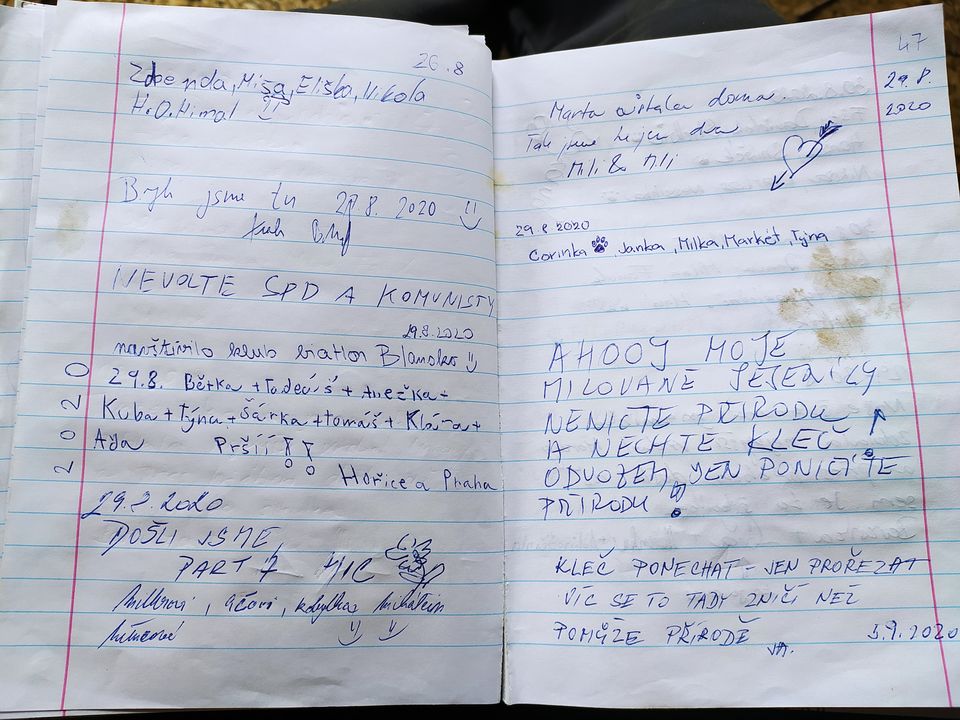 26.8
Zdenda, Míša, Eliška, Nikola
H.O. Himal
Byli jsme tu 29.8. 2020
NEVOLTE SPD A KOMUNISTY
29.8.2020
navštívilo klub biatlon Blansko
29.8. Bětka + Tadeáš + Anežka +
Kuba + Týna + Šárka + Tomáš + Klára +
Ada Prší!!
2020
Hořice a Praha
29.8.2020
DOŠLI JSME,
PART 7 HIC
47
29.8.
2020
Marta zůstala doma.
Tak jsme tu jen dva
Mli & Mli
29.8 2020
Corinka, Janka, Milka, Markét, Týna
AHOOJ MOJE
MILOVANÉ JESENÍKY
NENIČTE PŘÍRODU
A NECHTE KLEČ!
ODVOZEM JEN PONIČÍTE
PŘÍRODU!
KLEČ PONECHAT - JEN PROŘEZAT
VÍC SE TO TADY ZNIČÍ NEŽ
POMŮŽE PŘÍRODĚ 5.9.2020